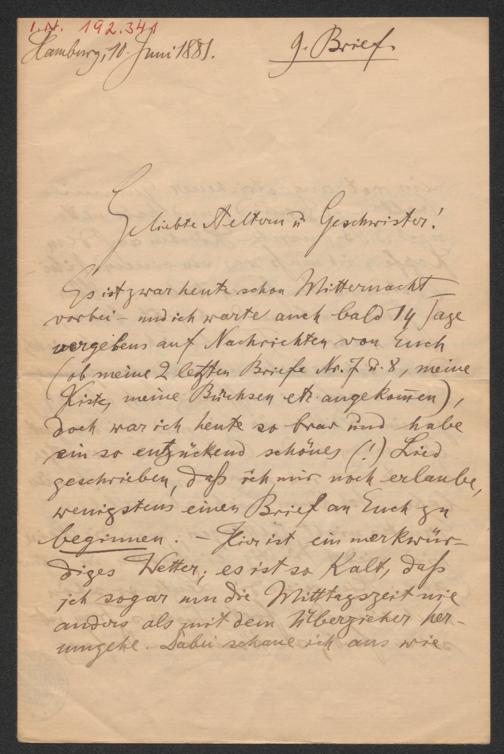 I.N. 192.341
Hamburg, 10. Juni 1881.
9. Brief.
Geliebte Aeltern u Geschwister!
Es ist zwar heute schon Mitternacht
vorbei – und ich warte auch bald 14 Tage
vergebens auf Nachrichten von Euch
(ob meine 2 letzten Briefe Nr. 7 u. 8, meine
Kiste, meine Büchsen etc angekommen),
doch war ich heute so brav und habe
ein so entzückend schönes (!) Lied
geschrieben, daß ich mir noch erlaube,
wenigstens einen Brief an Euch zu
beginnen. – Hier ist ein merkwür-
diges Wetter; es ist so kalt, daß
ich sogar um die Mitttagszeit nie
anders als mit dem Überzieher her-
umgehe. Dabei schaue ich aus wie